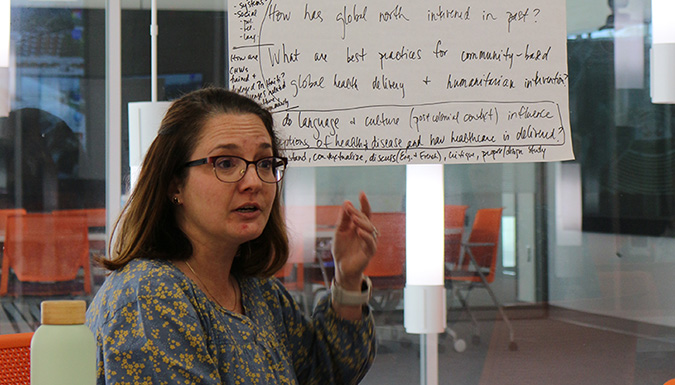 - systems
- social
- pol.
- lang
How has global north intervened in past?
What are best practices for community-based
How are
CHWs
trained +
global health delivery + humanitarian intervention?
do language + culture (postcolonial context) influence
of health + disease and how healthcare is delivered?
contextualize, discuss (Eng. + French), critique, design study